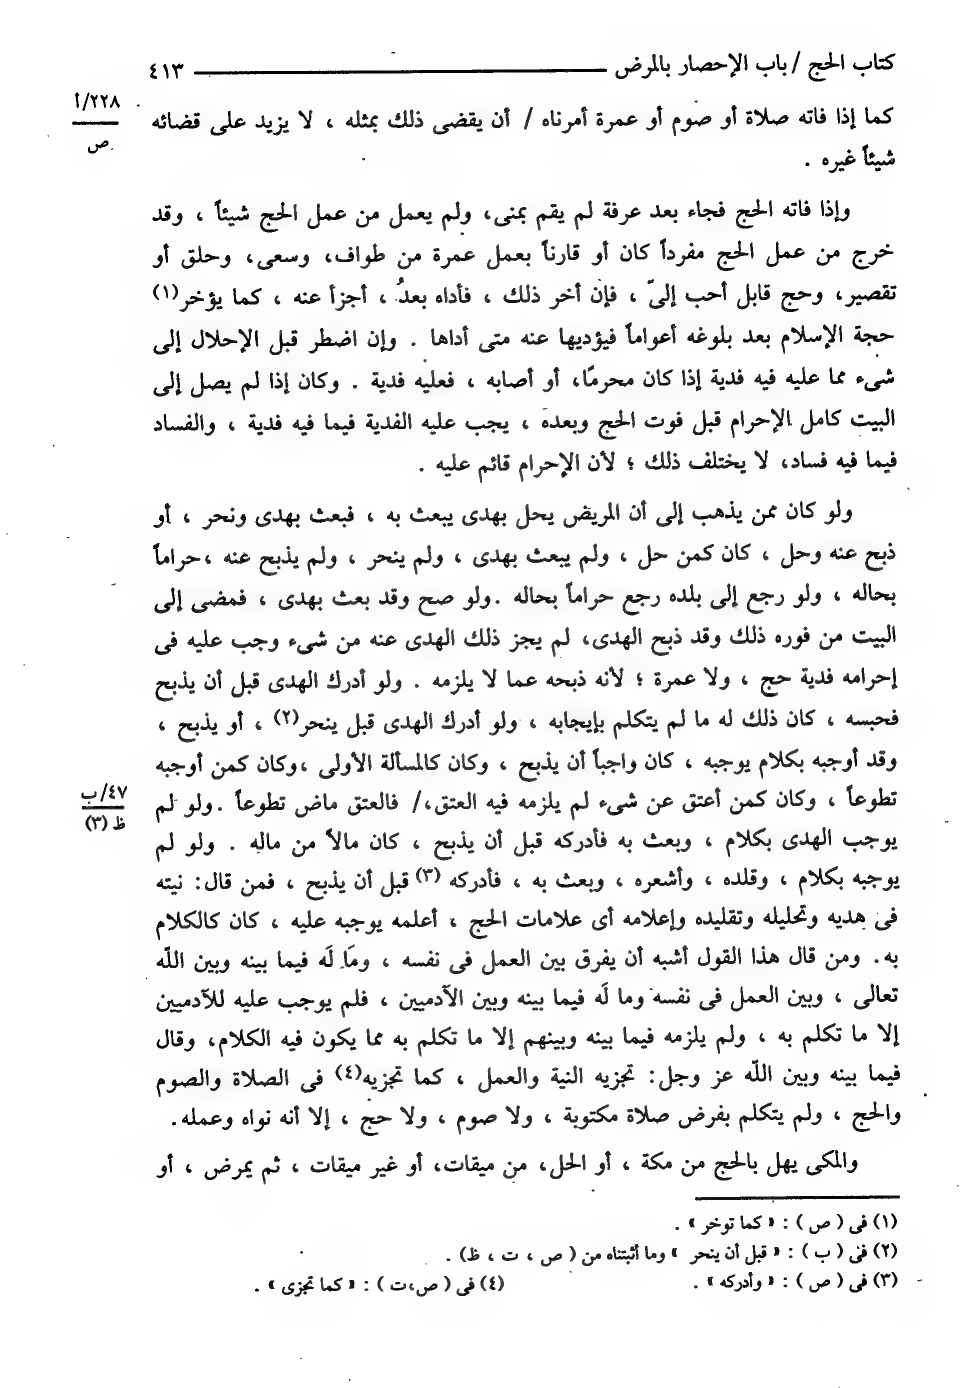 كتاب الحج / باب الإحصار بالمرض ٤١٣
٢٢٨/أ
ص
كما إذا فاته صلاة أو صوم أو عمرة أمرناه / أن يقضى ذلك بمثله ، لا يزيد على قضائه
شيئاً غيره .
وإذا فاته الحج فجاء بعد عرفة لم يقم بمنى، ولم يعمل من عمل الحج شيئاً ، وقد
خرج من عمل الحج مفرداً كان أو قارناً بعمل عمرة من طواف، وسعى، وحلق أو
تقصير، وحج قابل أحب إلىّ ، فإن أخر ذلك ، فأداه بعدُ ، أجزأ عنه ، كما يؤخر(١)
حجة الإسلام بعد بلوغه أعواماً فيؤديها عنه متى أداها . وإن اضطر قبل الإحلال إلى
شىء مما عليه فيه فدية إذا كان محرمًا، أو أصابه ، فعليه فدية . وكان إذا لم يصل إلى
البيت كامل الإحرام قبل فوت الحج وبعده ، يجب عليه الفدية فيما فيه فدية ، والفساد
فيما فيه فساد، لا يختلف ذلك ؛ لأن الإحرام قائم عليه .
ولو كان ممن يذهب إلى أن المريض يحل بهدى يبعث به ، فبعث بهدى ونحر ، أو
ذبح عنه وحل ، كان كمن حل ، ولم يبعث بهدى ، ولم ينحر ، ولم يذبح عنه ،حراماً
بحاله ، ولو رجع إلى بلده رجع حراماً بحاله .ولو صح وقد بعث بهدى ، فمضى إلى
البيت من فوره ذلك وقد ذبح الهدى، لم يجز ذلك الهدى عنه من شىء وجب عليه فى
إحرامه فدية حج ، ولا عمرة ؛ لأنه ذبحه عما لا يلزمه . ولو أدرك الهدى قبل أن يذبح
فحبسه ، كان ذلك له ما لم يتكلم بإيجابه ، ولو أدرك الهدى قبل ينحر(٢) ، أو يذبح ،
وقد أوجبه بكلام يوجبه ، كان واجباً أن يذبح ، وكان كالمسألة الأولى ،وكان كمن أوجبه
تطوعاً ، وكان كمن أعتق عن شىء لم يلزمه فيه العتق،/ فالعتق ماض تطوعاً .ولو لم
٤٧/ب
ظ (٣)
يوجب الهدى بكلام ، وبعث به فأدركه قبل أن يذبح ، كان مالاً من ماله . ولو لم
يوجبه بكلام ، وقلده ، وأشعره ، وبعث به ، فأدركه (٣) قبل أن يذبح ، فمن قال: نيته
فى هديه وتحليله وتقليده وإعلامه أى علامات الحج ، أعلمه يوجبه عليه ، كان كالكلام
به. ومن قال هذا القول أشبه أن يفرق بين العمل فى نفسه ، ومَا لَه فيما بينه وبين الله
تعالى ، وبين العمل فى نفسه وما لَه فيما بينه وبين الآدميين ، فلم يوجب عليه للآدميين
إلا ما تكلم به ، ولم يلزمه فيما بينه وبينهم إلا ما تكلم به مما يكون فيه الكلام، وقال
فيما بينه وبين الله عز وجل: تجزيه النية والعمل ، كما تجزيه(٤) فى الصلاة والصوم
والحج ، ولم يتكلم بفرض صلاة مكتوبة ، ولا صوم ، ولا حج ، إلا أنه نواه وعمله.
والمكى يهل بالحج من مكة ، أو الحل، من ميقات، أو غير ميقات ، ثم يمرض ، أو
(١) فى ( ص ) : « كما توخر » .
(٢) فى ( ب ) : « قبل أن ينحر » وما أثبتناه من ( ص ، ت ، ظ) .
(٣) فى ( ص ) : « وأدركه » . (٤) فى ( ص،ت ) : « كما تجزى » .